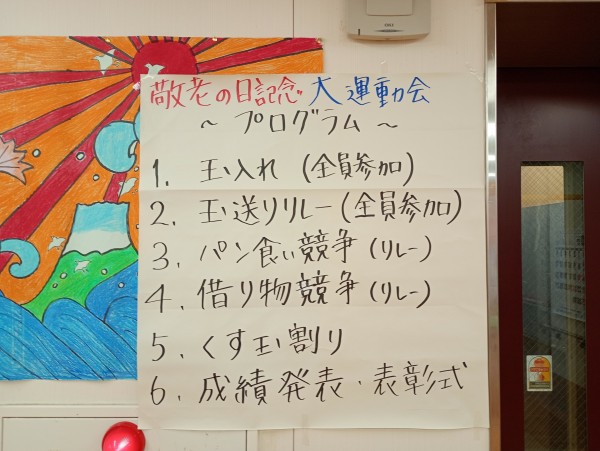 敬老の日記念 大運動会
～ プログラム ～
1. 玉入れ (全員参加)
2. 玉送りリレー (全員参加)
3. パン食い競争 (リレー)
4. 借り物競争 (リレー)
5. くす玉割り
6. 成績発表・表彰式